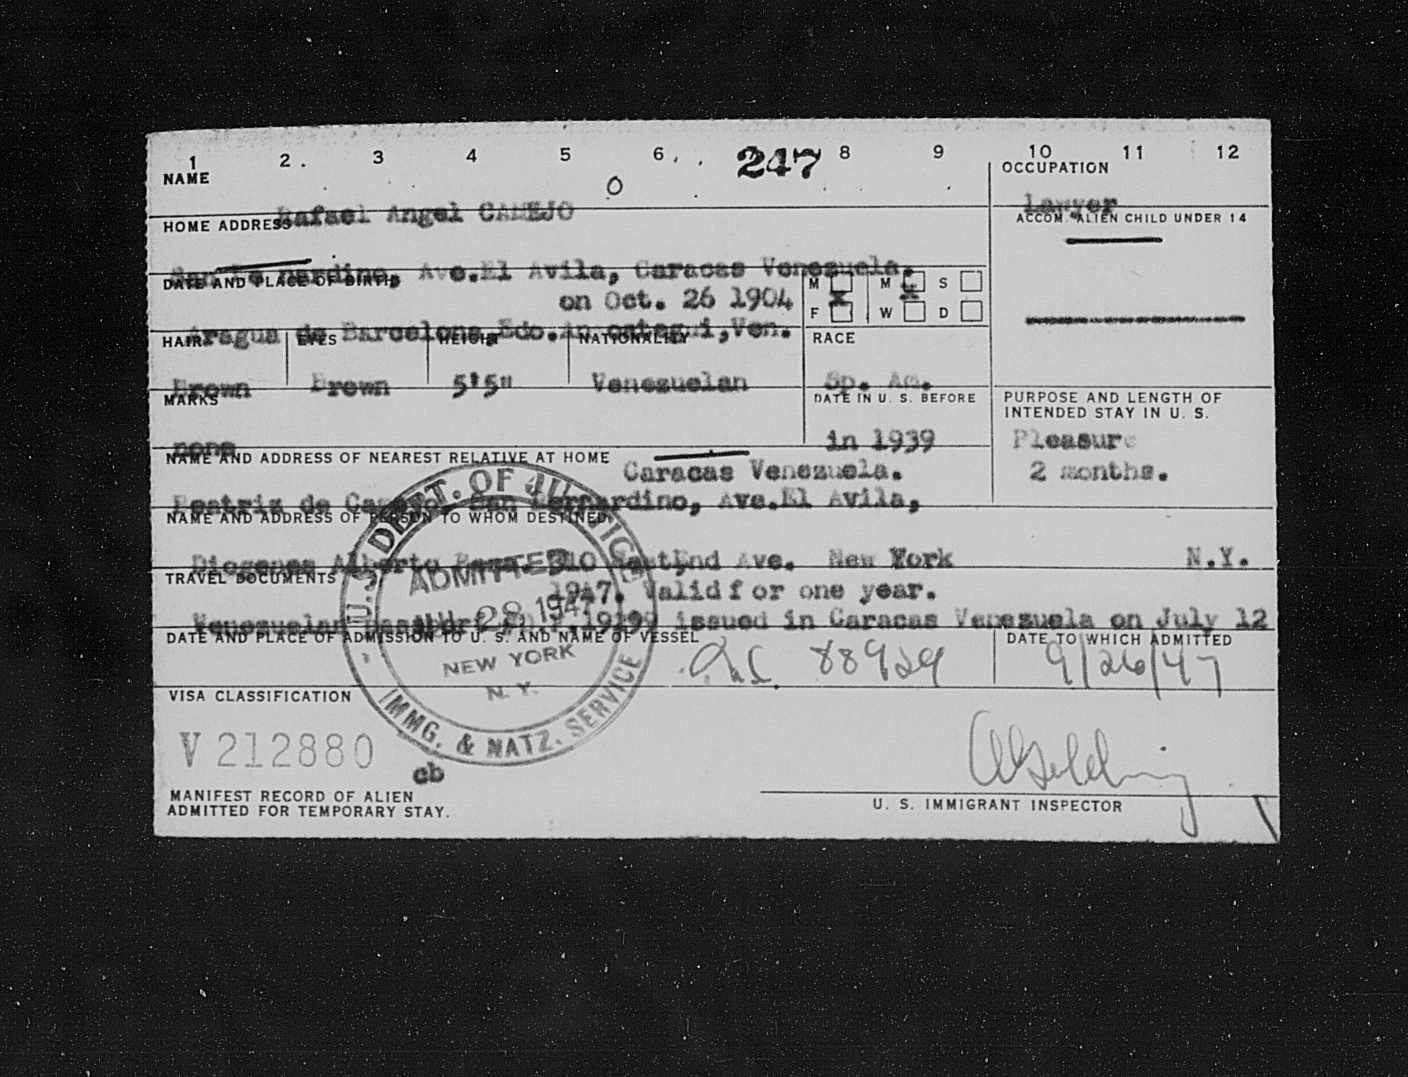 1 2 3 4 5 6 247 8 9 10 11 12
NAME
OCCUPATION
O
Rafael Angel CAMEJO
Lawyer
HOME ADDRESS
ACCOM. ALIEN CHILD UNDER 14
San Be nardino, Ave.El Avila, Caracas Venezuela.
DATE AND PLACE OF BIRTH
M M S
on Oct. 26 1904
X X
F W D
Aragua de Barcelona, Edo. Anzoategui, Ven.
HAIR EYES HEIGHT NATIONALITY RACE
Brown Brown 5'5" Venezuelan Sp. Am.
MARKS
DATE IN U. S. BEFORE
PURPOSE AND LENGTH OF
INTENDED STAY IN U. S.
none
in 1939
Pleasure
NAME AND ADDRESS OF NEAREST RELATIVE AT HOME
Caracas Venezuela.
2 months.
Beatriz de Camejo, San Bernardino, Ave.El Avila,
NAME AND ADDRESS OF PERSON TO WHOM DESTINED
Diogenes Alberto 310 WestEnd Ave. New York N.Y.
TRAVEL DOCUMENTS
1947. Valid for one year.
Venezuelan passport issued in Caracas Venezuela on July 12
DATE AND PLACE OF ADMISSION TO U. S. AND NAME OF VESSEL
DATE TO WHICH ADMITTED
88929
9/26/47
U.S. DEPT. OF JUSTICE
ADMITTED
JUL 28 1947
NEW YORK
N. Y.
IMMG. & NATZ. SERVICE
VISA CLASSIFICATION
V 212880
cb
MANIFEST RECORD OF ALIEN
ADMITTED FOR TEMPORARY STAY.
U. S. IMMIGRANT INSPECTOR